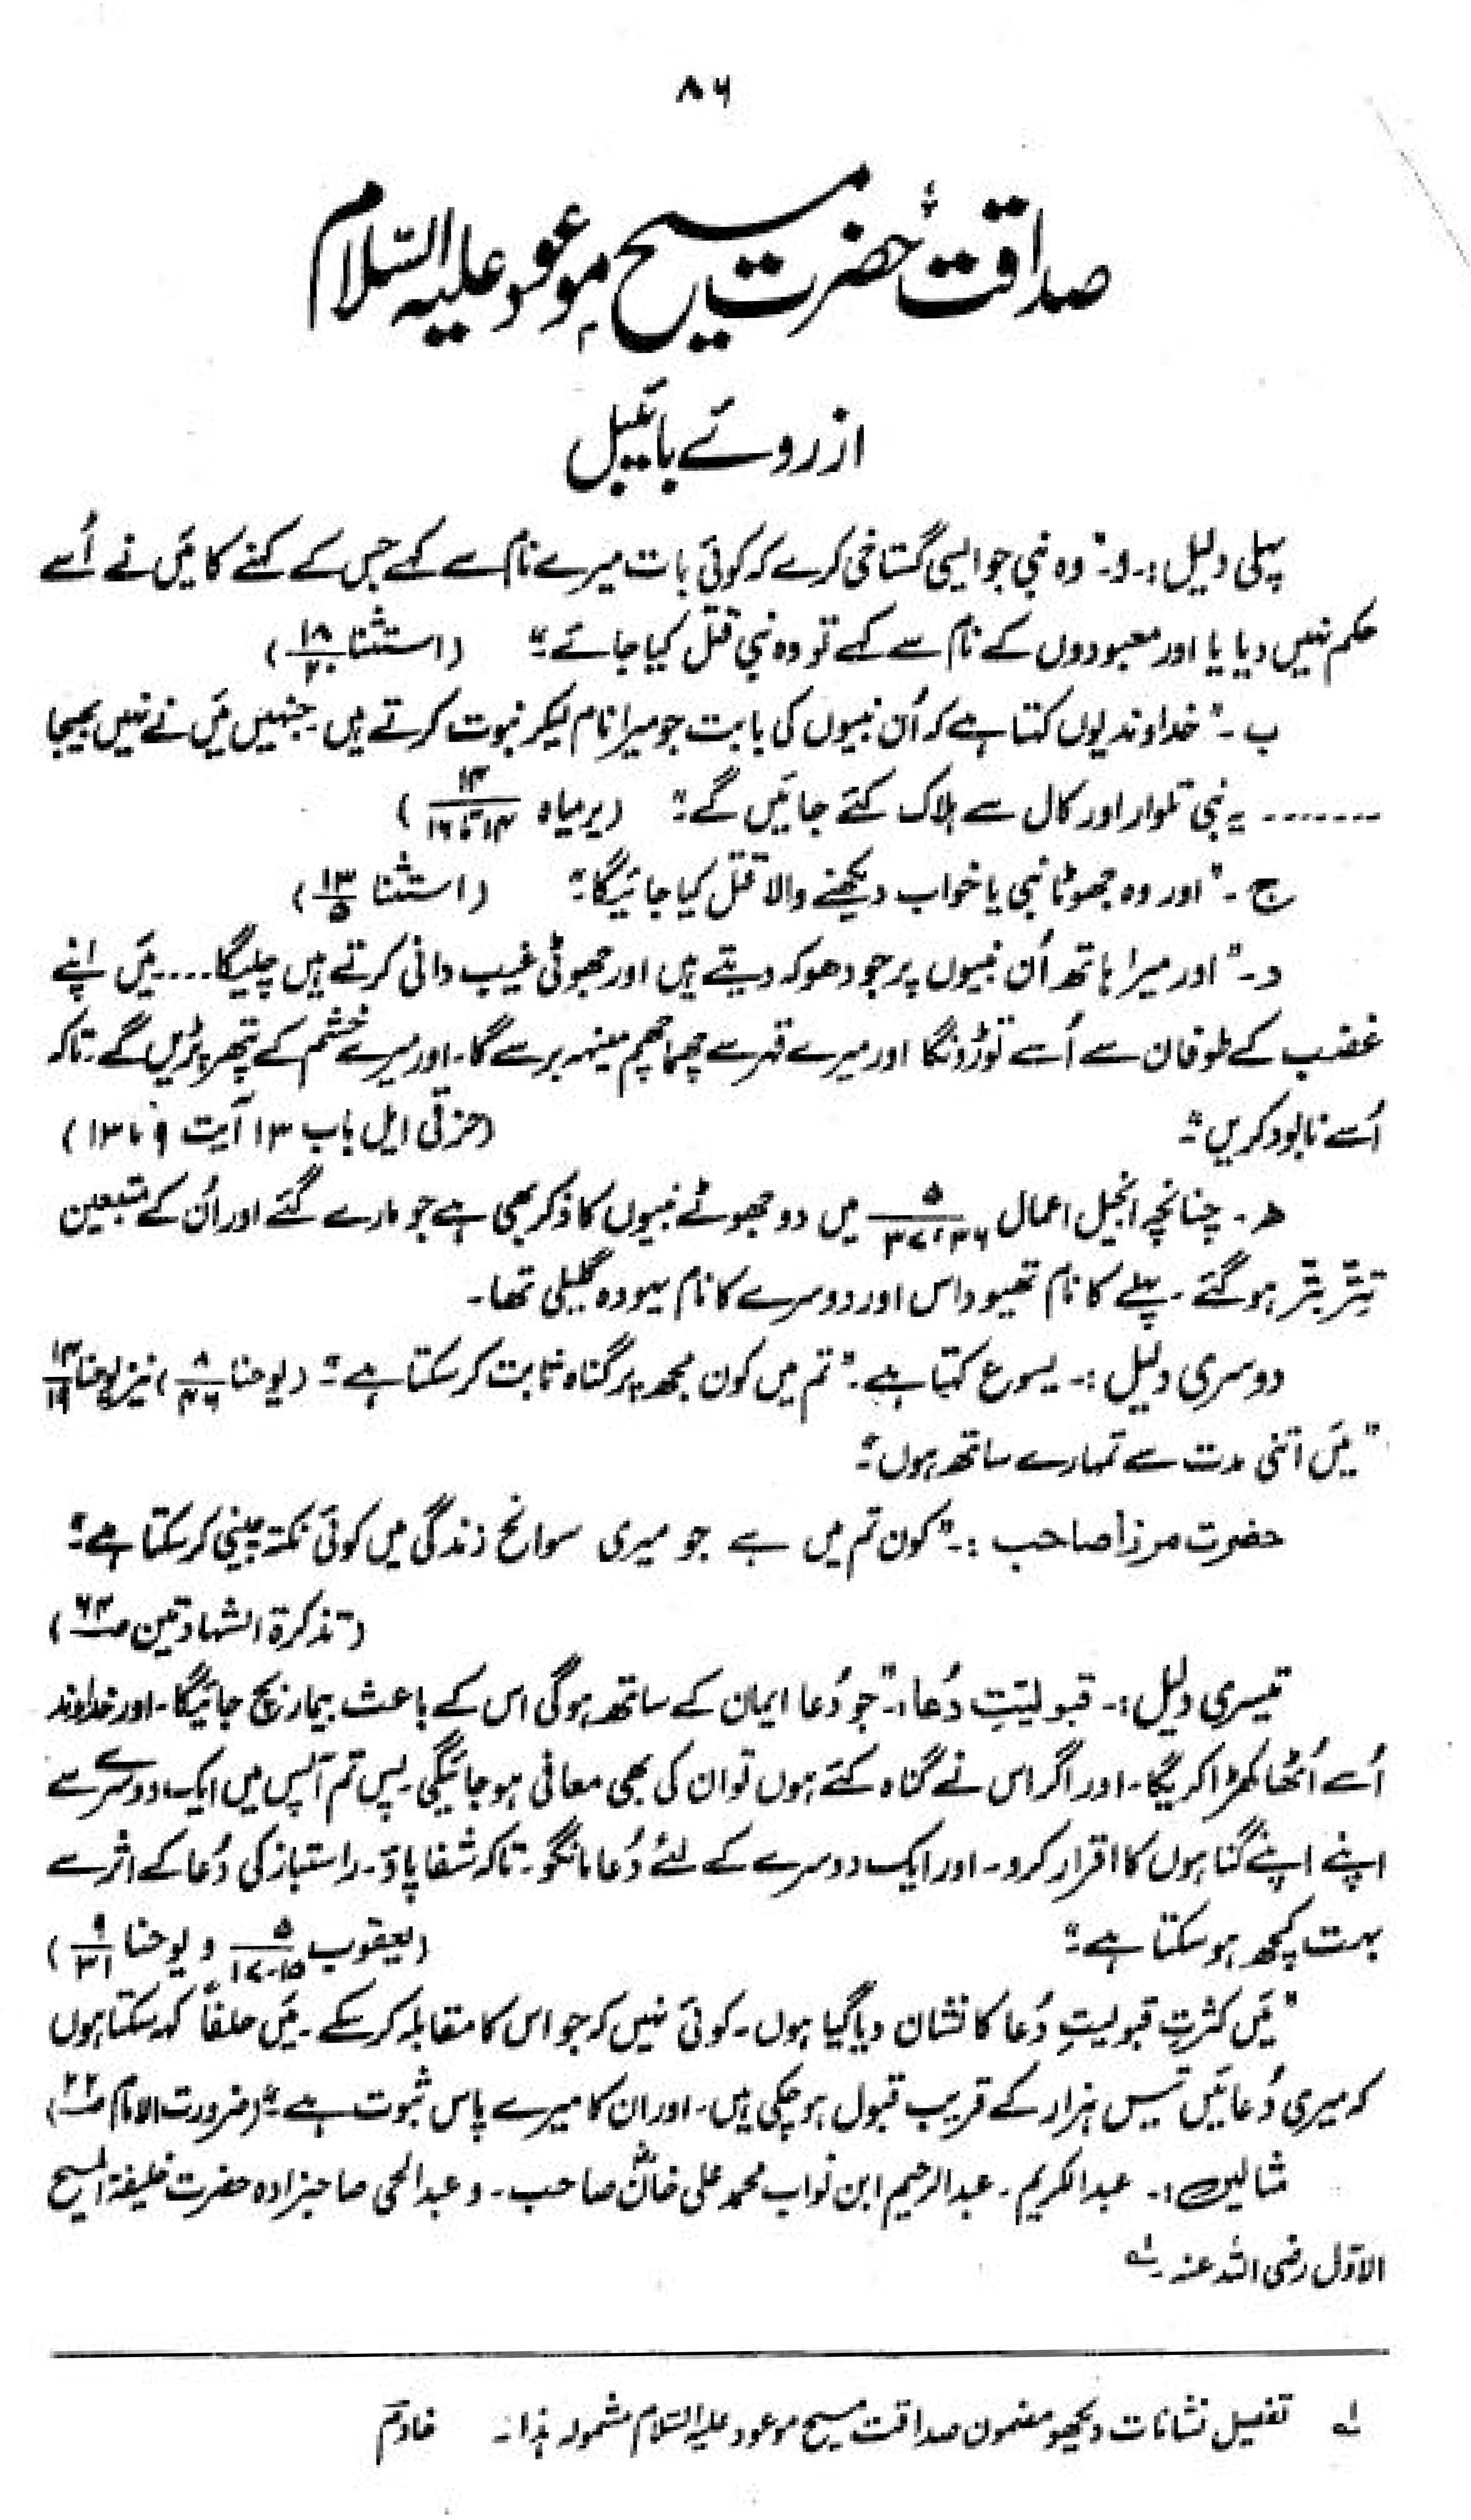 ۸۶
صداقت حضرت مسیح موعود علیہ السّلام
از روئے بائیبل
پہلی دلیل :۔ و۔ "وہ نبی جو ایسی گستاخی کرے کہ کوئی بات میرے نام سے کہے جس کے کہنے کا مَیں نے اُسے
حکم نہیں دیا یا اور معبودوں کے نام سے کہے تو وہ نبی قتل کیا جائے" (استثنا ۱۸/۲۰)
ب ۔ "خداوند یوں کہتا ہے کہ اُن نبیوں کی بابت جو میرا نام لیکر نبوت کرتے ہیں۔ جنہیں مَیں نے نہیں بھیجا
....... یہ نبی تلوار اور کال سے ہلاک کئے جائیں گے" (یرمیاہ ۱۴/۱۴تا۱۶)
ج ۔ "اور وہ جھوٹا نبی یا خواب دیکھنے والا قتل کیا جائیگا" (استثنا ۱۳/۵)
د ۔ "اور میرا ہاتھ اُن نبیوں پر جو دھوکہ دیتے ہیں اور جھوٹی غیب دانی کرتے ہیں چلیگا .... مَیں اپنے
غضب کے طوفان سے اُسے توڑونگا اور میرے قہر سے چھماچھم مینہہ برسے گا۔ اور میرے خشم کے پتھر پڑیں گے۔ تاکہ
اُسے نابود کریں" (حزقی ایل باب ۱۳ آیت ۹ تا ۱۳)
ھ ۔ چنانچہ انجیل اعمال ۵/۳۶،۳۷ میں دو جھوٹے نبیوں کا ذکر بھی ہے جو مارے گئے اور اُن کے متبعین
تِتّر بِتّر ہو گئے ۔ پہلے کا نام تھیوداس اور دوسرے کا نام یہودہ گلیلی تھا۔
دوسری دلیل :۔ یسوع کہتا ہے۔ "تم میں کون مجھ پر گناہ ثابت کر سکتا ہے" (یوحنا ۸/۴۶) نیز یوحنا ۱۴/۹
"مَیں اتنی مدت سے تمہارے ساتھ ہوں"
حضرت مرزا صاحب :۔ "کون تم میں ہے جو میری سوانح زندگی میں کوئی نکتہ چینی کر سکتا ہے"
(تذکرۃ الشہادتین صـ ۶۴)
تیسری دلیل :۔ قبولیّتِ دُعا :۔ "جو دُعا ایمان کے ساتھ ہو گی اس کے باعث بیمار بچ جائیگا۔ اور خداوند
اُسے اُٹھا کھڑا کریگا۔ اور اگر اس نے گناہ کئے ہوں تو ان کی بھی معافی ہو جائیگی۔ پس تم آپس میں ایک دوسرے سے
اپنے اپنے گناہوں کا اقرار کرو۔ اور ایک دوسرے کے لئے دُعا مانگو۔ تاکہ شفا پاؤ۔ راستباز کی دُعا کے اثر سے
بہت کچھ ہو سکتا ہے" (یعقوب ۵/۱۵۔۱۷ و یوحنا ۹/۳۱)
"مَیں کثرتِ قبولیتِ دُعا کا نشان دیا گیا ہوں۔ کوئی نہیں کہ جو اس کا مقابلہ کر سکے۔ مَیں حلفاً کہہ سکتا ہوں
کہ میری دُعائیں تیس ہزار کے قریب قبول ہو چکی ہیں۔ اور ان کا میرے پاس ثبوت ہے" (ضرورت الامام صـ ۲۲)
مثالیں :۔ عبدالکریم۔ عبدالرحیم ابن نواب محمد علی خانؓ صاحب۔ و عبدالحی صاحبزادہ حضرت خلیفۃ المسیح
الاوّل رضی اللہ عنہ ۔ لے
لے تفصیل نشانات دیکھو مضمون صداقت مسیح موعود علیہ السّلام مشمولہ ہٰذا۔ خادم